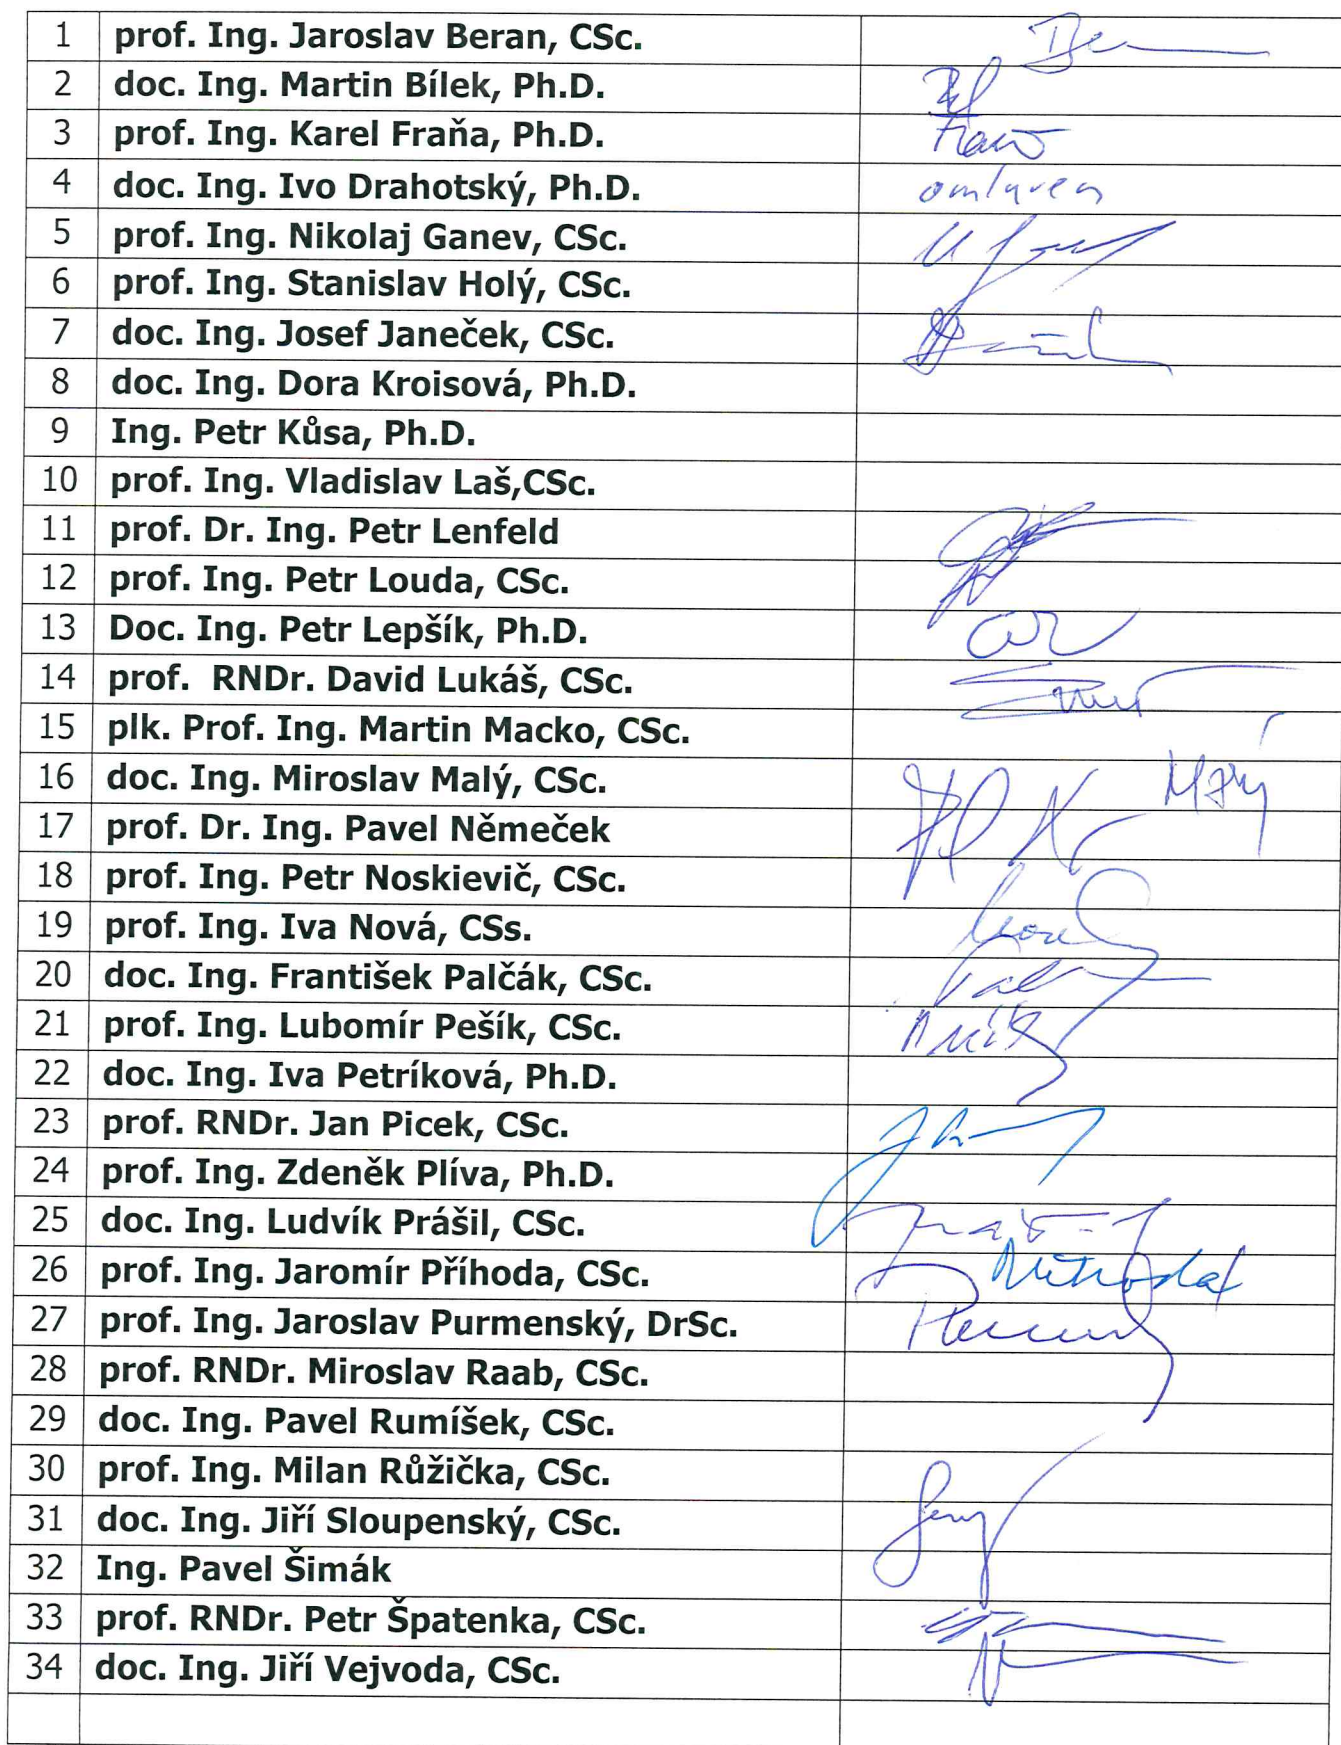 1 prof. Ing. Jaroslav Beran, CSc.
2 doc. Ing. Martin Bílek, Ph.D.
3 prof. Ing. Karel Fraňa, Ph.D.
4 doc. Ing. Ivo Drahotský, Ph.D. omluven
5 prof. Ing. Nikolaj Ganev, CSc.
6 prof. Ing. Stanislav Holý, CSc.
7 doc. Ing. Josef Janeček, CSc.
8 doc. Ing. Dora Kroisová, Ph.D.
9 Ing. Petr Kůsa, Ph.D.
10 prof. Ing. Vladislav Laš,CSc.
11 prof. Dr. Ing. Petr Lenfeld
12 prof. Ing. Petr Louda, CSc.
13 Doc. Ing. Petr Lepšík, Ph.D.
14 prof. RNDr. David Lukáš, CSc.
15 plk. Prof. Ing. Martin Macko, CSc.
16 doc. Ing. Miroslav Malý, CSc.
17 prof. Dr. Ing. Pavel Němeček
18 prof. Ing. Petr Noskievič, CSc.
19 prof. Ing. Iva Nová, CSs.
20 doc. Ing. František Palčák, CSc.
21 prof. Ing. Lubomír Pešík, CSc.
22 doc. Ing. Iva Petríková, Ph.D.
23 prof. RNDr. Jan Picek, CSc.
24 prof. Ing. Zdeněk Plíva, Ph.D.
25 doc. Ing. Ludvík Prášil, CSc.
26 prof. Ing. Jaromír Příhoda, CSc.
27 prof. Ing. Jaroslav Purmenský, DrSc.
28 prof. RNDr. Miroslav Raab, CSc.
29 doc. Ing. Pavel Rumíšek, CSc.
30 prof. Ing. Milan Růžička, CSc.
31 doc. Ing. Jiří Sloupenský, CSc.
32 Ing. Pavel Šimák
33 prof. RNDr. Petr Špatenka, CSc.
34 doc. Ing. Jiří Vejvoda, CSc.